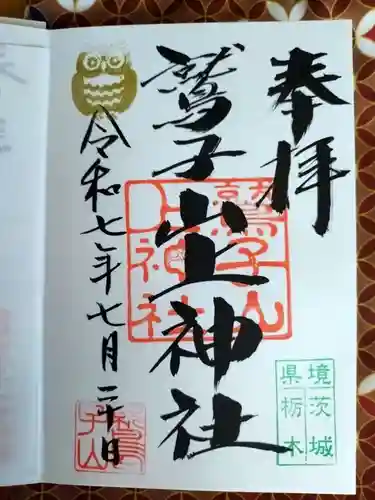 奉拝
鷲子山上神社
令和七年七月二十日
鷲子山
上神社
境茨城
県栃木
鷲子山